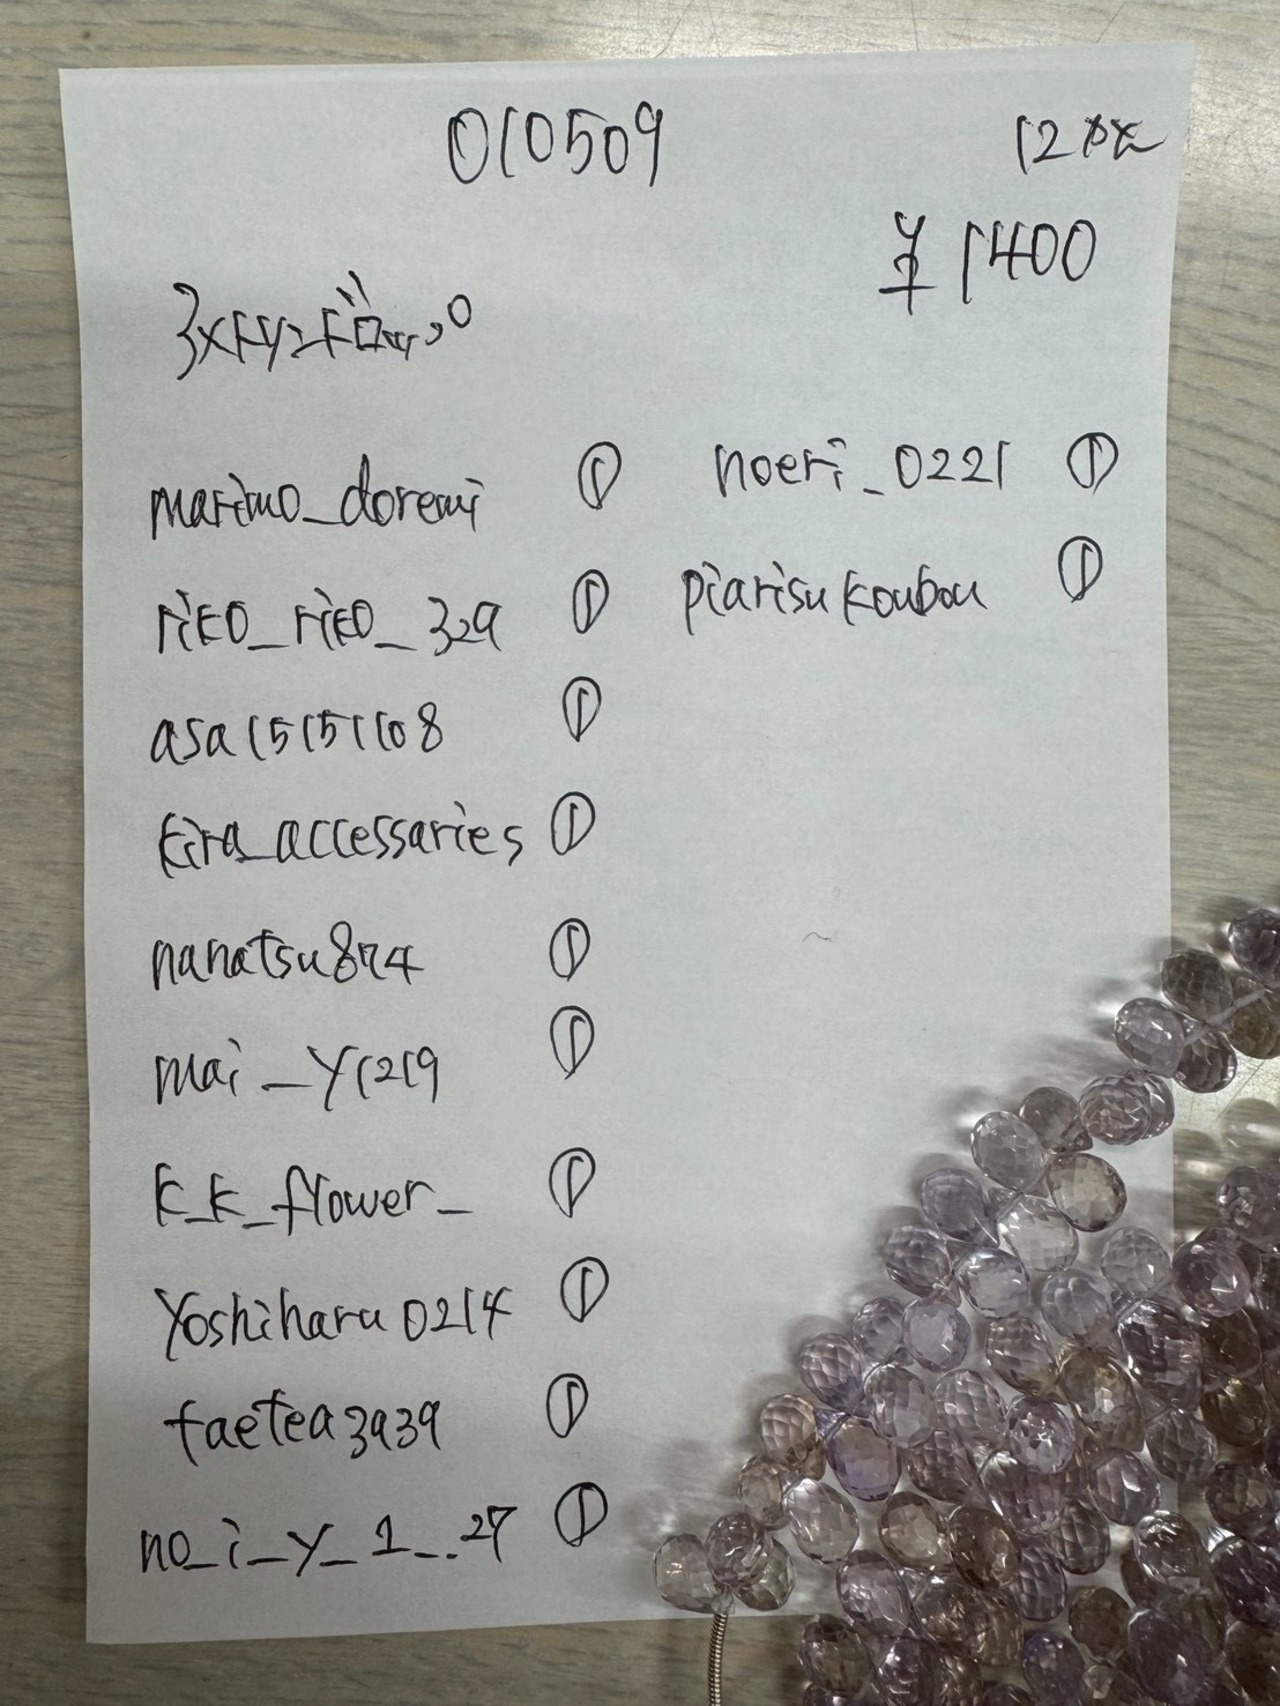 010509
12
¥1400
marimo_doremi ①
riko_riko_329 ①
asa15151108 ①
kira_accessaries ①
nanatsu874 ①
mai_y1219 ①
k_k_flower_ ①
yoshiharu0214 ①
faetea3939 ①
no_i_y_1_..27 ①
noeri_0221 ①
piarisukoubou ①